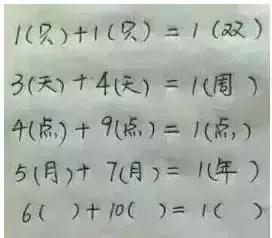 1(只)+1(只) = 1(双)
3(天)+4(天) = 1(周)
4(点)+9(点) = 1(点)
5(月)+7(月) = 1(年)
6( )+10( )=1( )